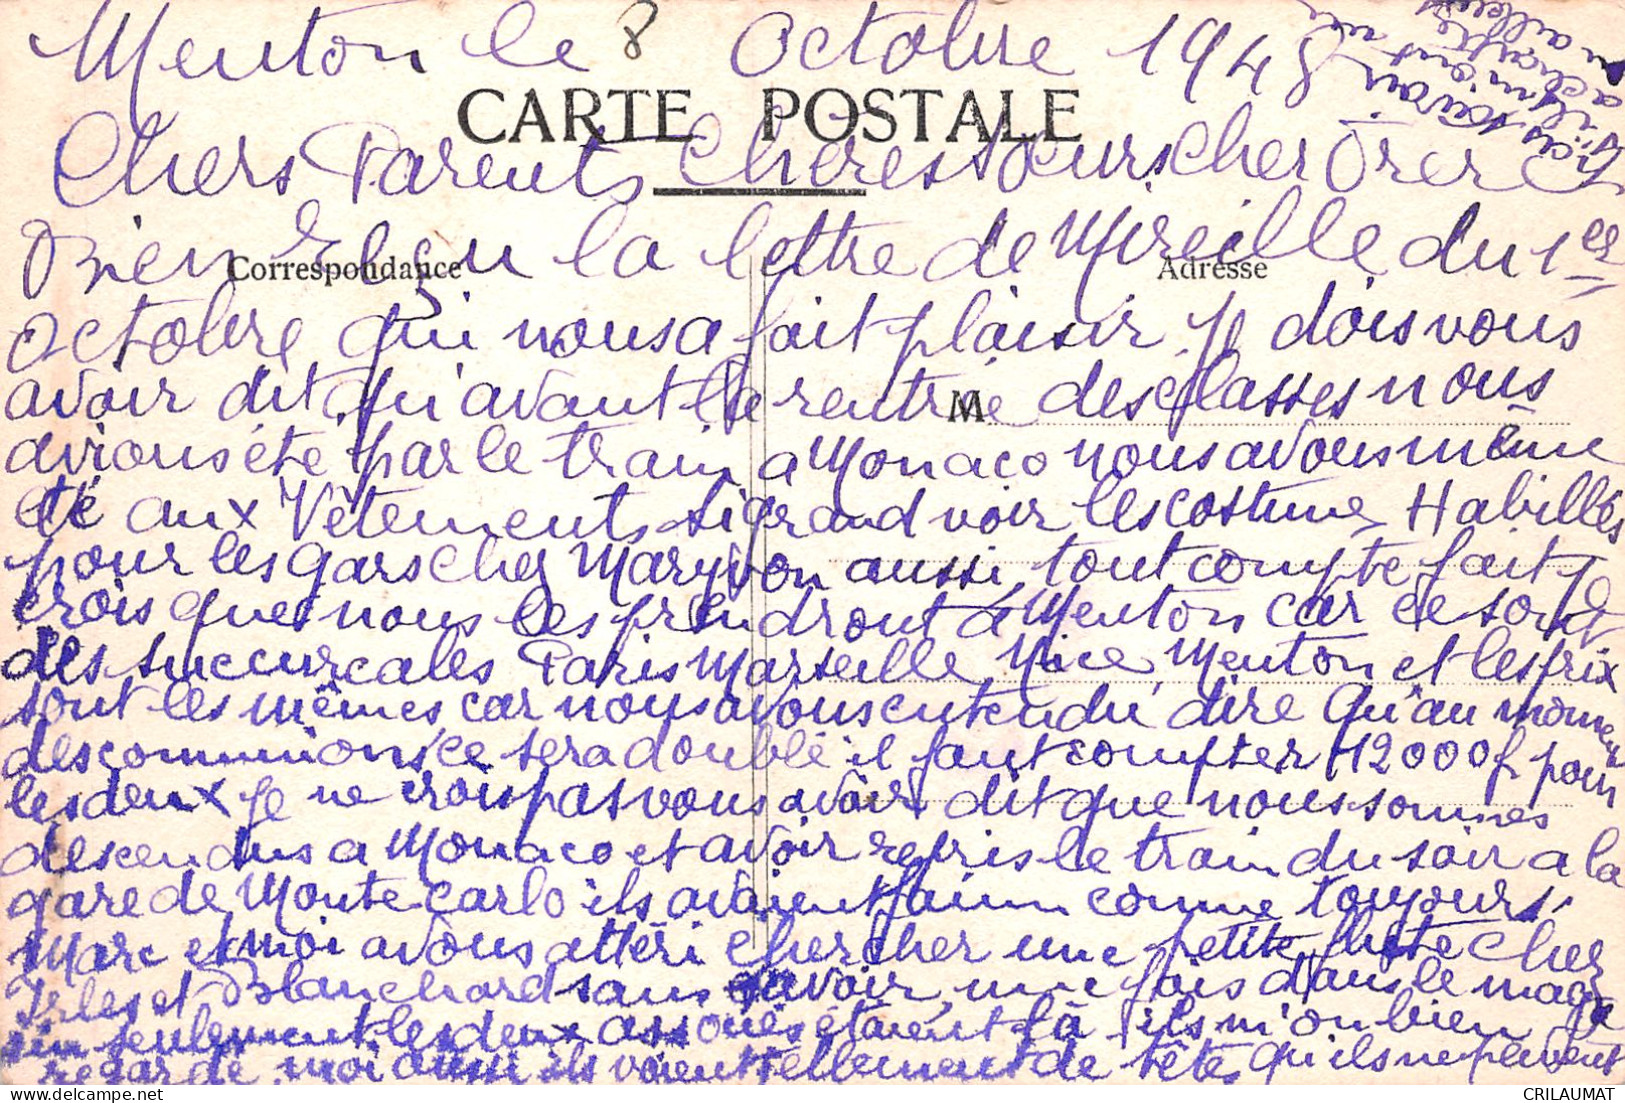 Menton le 8 Octobre 1948
CARTE POSTALE
Chers Parents Chères Soeurs Cher Frère
Bien reçu la lettre de Mireille du 1er
Correspondance
Adresse
Octobre qui nous a fait plaisir. Je dois vous
avoir dit qu'avant la rentrée des classes nous
M
avions été par le train a Monaco nous avons même
été aux Vêtements Sigrand voir les costumes Habillés
pour les gars chez Maryvon aussi, tout compte fait je
crois que nous les prendront à Menton car ce sont
des succurcales Paris Marseille, Nice, Menton et les prix
sont les mêmes car nous avons entendu dire qu'au moment
des communions ce sera doublé il faut compter 12000f pour
les deux Je ne crois pas vous avoir dit que nous sommes
descendus a Monaco et avoir repris le train du soir a la
gare de Monte Carlo ils avaient faim comme toujours.
Marc et moi avons atteri chercher une petite flute cher
et Blanchard sans savoir, une fois dans le maga
sin seulement les deux associés étaient là ils m'on bien
regardé moi aussi ils voient tellement de têtes qu'ils ne peuvent
CRILAUMAT